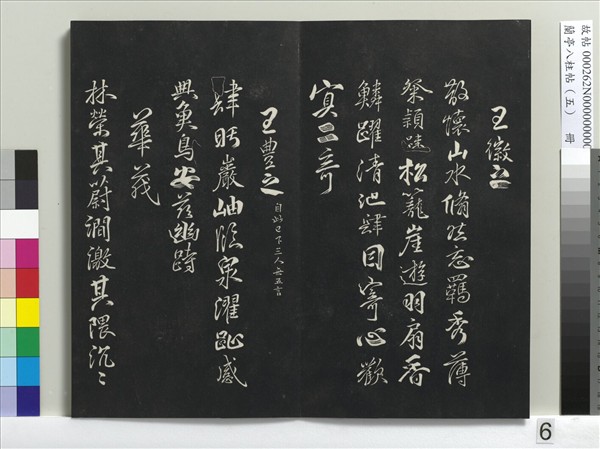 故帖 000262N000000000
蘭亭八柱帖（五） 冊
王徽之
散懷山水翛然忘羈秀薄
粲穎疎松籠崖遊羽扇霄
鱗躍清池肆目寄心歡
冥二奇
王豊之 自此已下三人無五言
肆眄巖岫臨泉濯趾感
興魚鳥安茲幽跱
華茂
林榮其蔚澗激其隈汎々
6